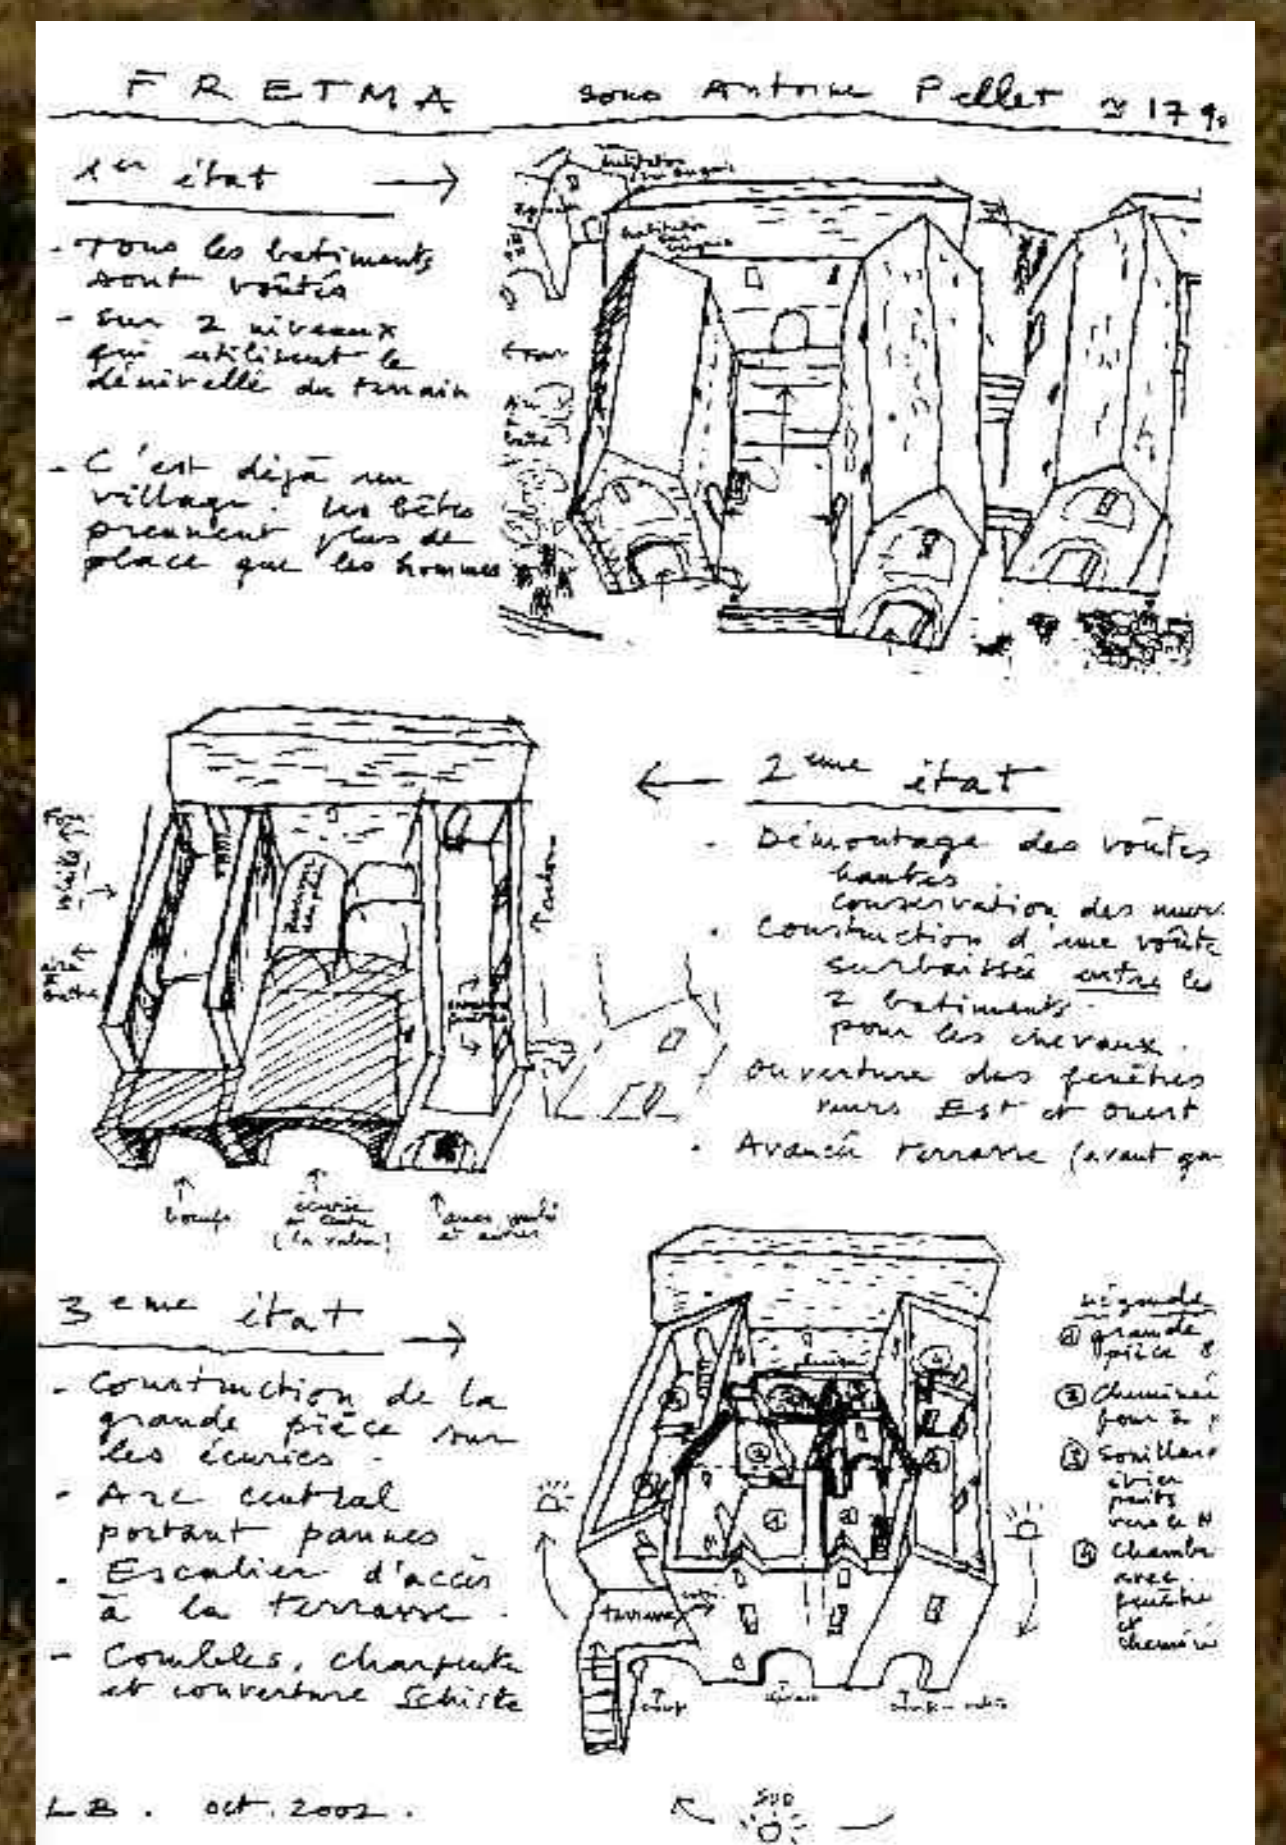 FRETMA sous Antoine Pellet ≃ 179
1er état →
- Tous les batiments
sont voûtés
- Sur 2 niveaux
qui utilisent le
dénivellé du terrain
- C'est déjà un
village. les bêtes
prennent plus de
place que les hommes
← 2eme état
. Démontage des voûtes
hautes
conservation des murs
. Construction d'une voûte
surbaissée entre les
2 batiments
pour les chevaux.
ouverture des fenêtres
murs Est et ouest
. Avancée terrasse (avant
Four
boeufs
écurie
ânes
et autres
3eme état →
- Construction de la
grande pièce sur
les écuries.
- Arc central
portant pannes
. Escalier d'accès
à la terrasse.
- Combles, charpente
et couverture Schiste
terrasse
Légende
① grande
pièce
② Cheminée
four à
③ Souillard
évier
puits
vers le N
④ Chambr
avec
fenêtre
et
cheminé
SUD
LB. oct. 2002.